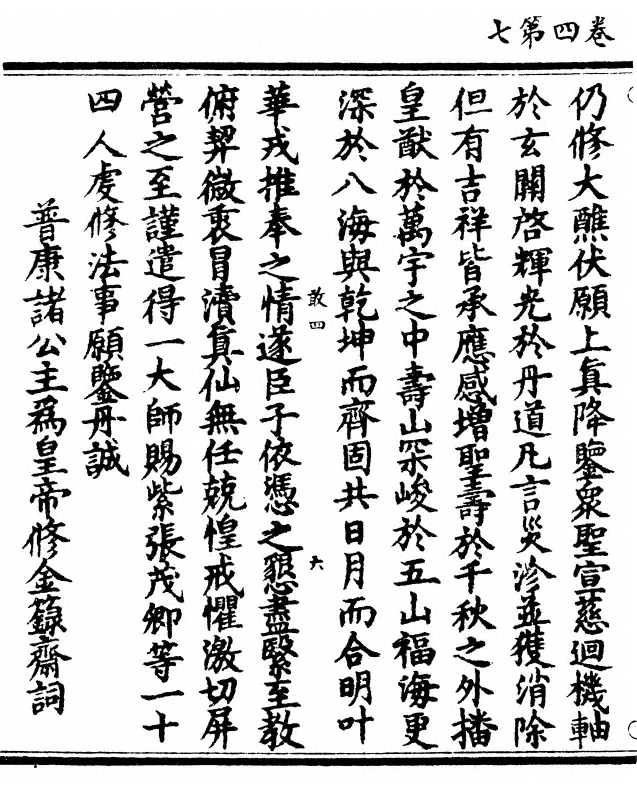 卷四第七
仍修大醮伏願上真降鑒眾聖宣慈迴機軸
於玄關啓輝光於丹道凡言災沴並獲消除
但有吉祥皆承應感增聖壽於千秋之外播
皇猷於萬宇之中壽山罙峻於五山福海更
深於八海與乾坤而齊固共日月而合明叶
敢四
六
華戎推奉之情遂臣子依憑之懇盡繄至教
俯揳微衷冒瀆真仙無任兢惶戒懼激切屏
營之至謹遣得一大師賜紫張茂卿等一十
四人虔修法事願鑒丹誠
普康諸公主為皇帝修金籙齋詞